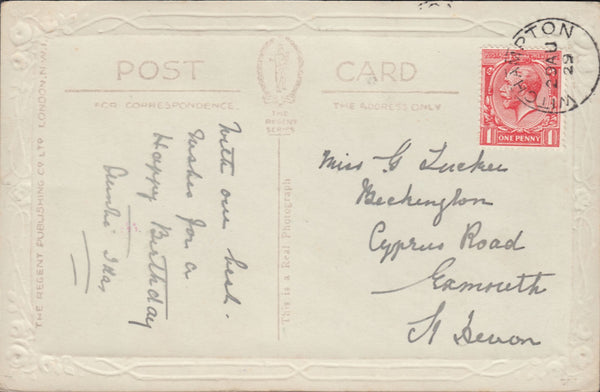 POST CARD
FOR CORRESPONDENCE.
THE ADDRESS ONLY
THE
REGENT
SERIES
THE REGENT PUBLISHING CO LTD LONDON. N.W.1
This is a Real Photograph
With our best
Wishes for a
Happy Birthday
Miss G Tucker
Beckington
Cyprus Road
Exmouth
Devon
ONE PENNY
1 1
29 AU
29